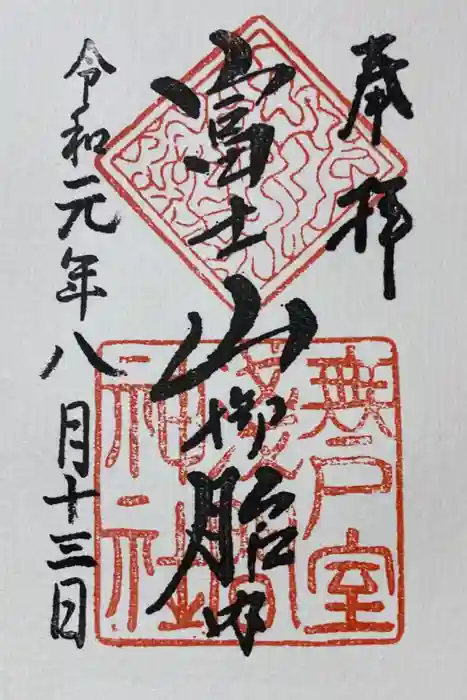 奉拝
富士山御胎内
無戸室
浅間
神社
令和元年八月十三日